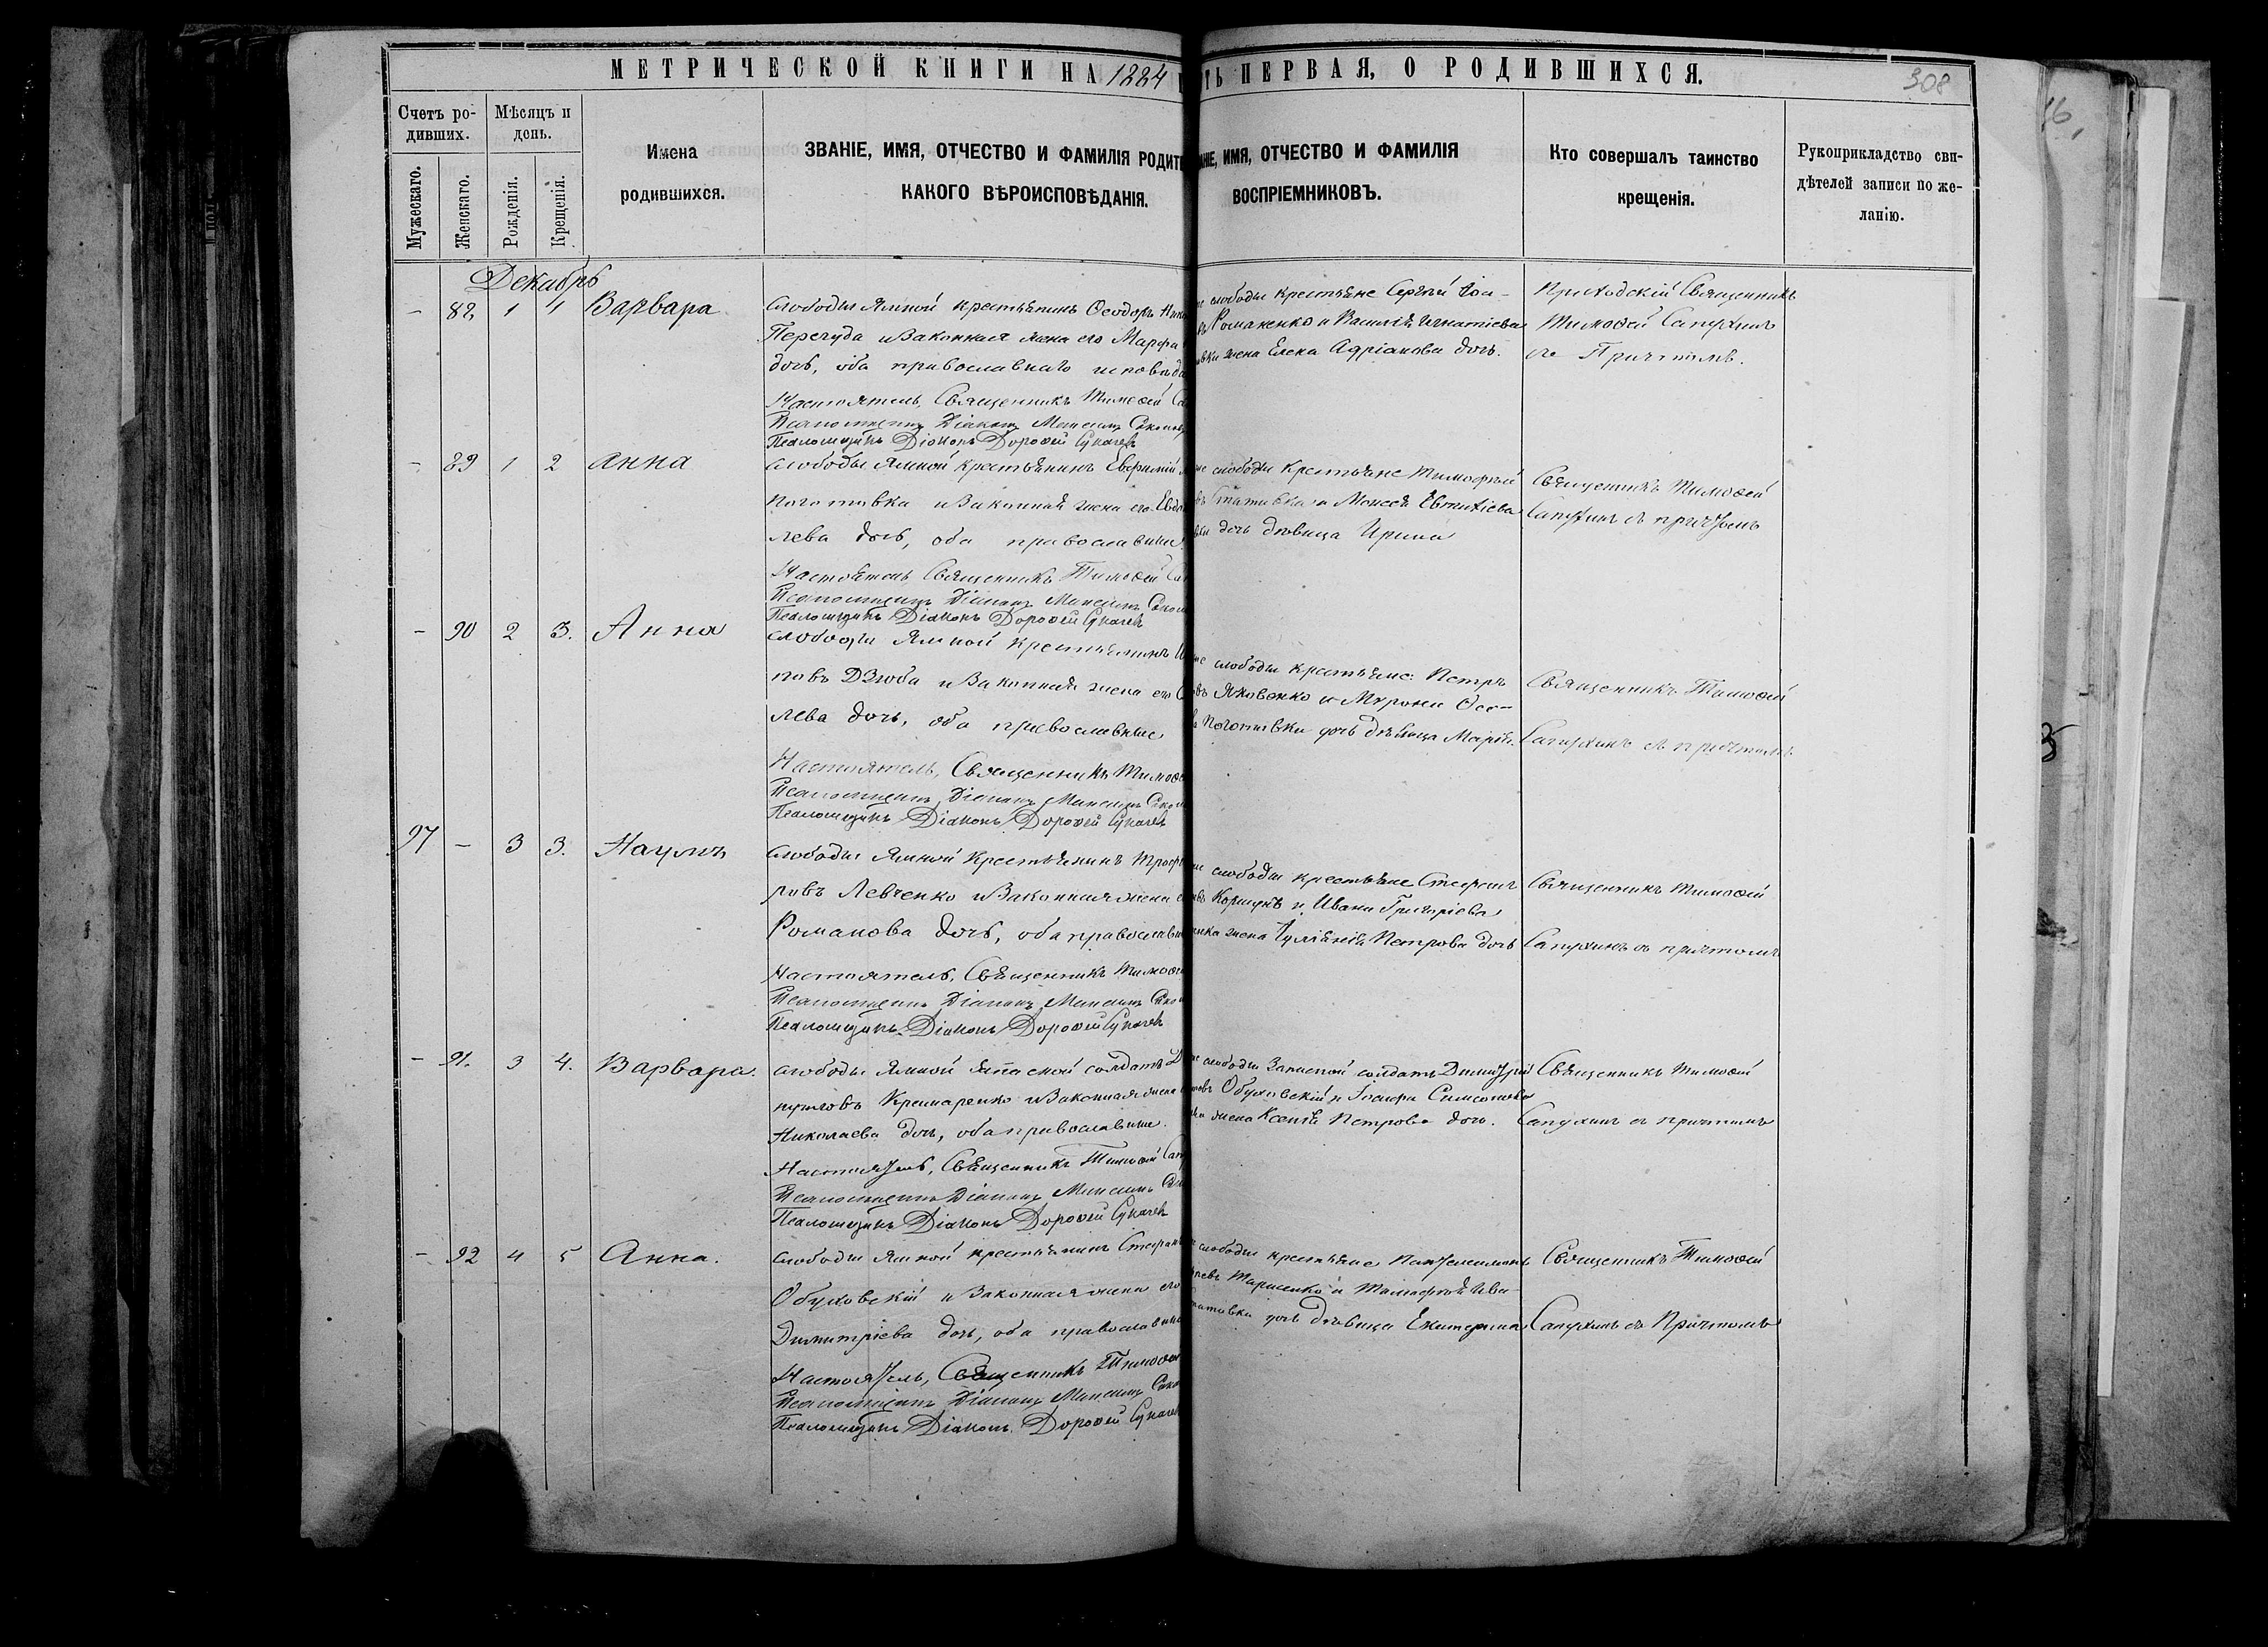 МЕТРИЧЕСКОЙ КНИГИ НА 1884
ТЬ ПЕРВАЯ, О РОДИВШИХСЯ.
308
Счетъ ро-
дившихъ.
Мужескаго.
Женскаго.
Мѣсяцъ и
день.
Рожденія.
Крещенія.
Имена
родившихся.
ЗВАНІЕ, ИМЯ, ОТЧЕСТВО И ФАМИЛІЯ РОДИТ
КАКОГО ВѢРОИСПОВѢДАНІЯ.
НІЕ, ИМЯ, ОТЧЕСТВО И ФАМИЛІЯ
ВОСПРІЕМНИКОВЪ.
Кто совершалъ таинство
крещенія.
Рукоприкладство сви-
дѣтелей записи по же-
ланію.
Декабрь
- 88 1 4 Варвара
слободы Ямной крестьянинъ Ѳеодоръ
Перегуда и законная жена его Марфа
дочь, оба православнаго исповѣда
Настоятель, Священникъ Тимоѳей
Псаломщикъ Діаконъ Максимъ
Псаломщикъ Діаконъ Дороѳей Сукачев
слободы крестьяне Сергѣй
Романенко и Василія Игнатіева
жена Елена Адріанова дочь.
Приходскій Священникъ
Тимоѳей Сапухинъ
съ Причтомъ.
- 89 1 2 Анна
слободы Ямной крестьянинъ Евфимій
Поготовка и законная жена его Евдо
лева дочь, оба православные
Настоятель Священникъ Тимоѳей
Псаломщикъ Діаконъ Максимъ
Псаломщикъ Діаконъ Дороѳей Сукачев
слободы крестьяне Тимофѣй
Стативка и Моисея
дочь дѣвица Ирина
Священникъ Тимоѳей
Сапухинъ съ причтомъ
- 90 2 3. Анна
слободы Ямной крестьянинъ
повъ Дзюба и законная жена его
лева дочь, оба православные
Настоятель, Священникъ Тимоѳе
Псаломщикъ Діаконъ Максимъ
Псаломщикъ Діаконъ Дороѳей Сукачев
слободы крестьяне: Петръ
Яковенко и Мирона
Поготовки дочь дѣвица Марія.
Священникъ Тимоѳей
Сапухинъ съ причтомъ
97 - 3 3. Наумъ
слободы Ямной крестьянинъ Троф
ровъ Левченко и законная жена
Романова дочь, оба православ
Настоятель, Священникъ Тимоѳ
Псаломщикъ Діаконъ Максимъ
Псаломщикъ Діаконъ Дороѳей Сукачев
слободы крестьяне Стефанъ
Коршунъ и Ивана Григоріева
жена Іуліанія Петрова дочь
Священникъ Тимоѳей
Сапухинъ съ причтомъ
- 91. 3 4. Варвара.
слободы Ямной запасной солдатъ
Крамаренко и законная жена
Николаева дочь, оба православные.
Настоятель, Священникъ Тимоѳей
Псаломщикъ Діаконъ Максимъ
Псаломщикъ Діаконъ Дороѳей Сукачев
слободы Запасной солдатъ Димитрій
Обуховскій и Іосифа Симонова
жена Ксенія Петрова дочь.
Священникъ Тимоѳей
Сапухинъ съ причтомъ
- 92 4 5 Анна.
слободы Ямной крестьянинъ Стефанъ
Обуховскій и законная жена его
Димитріева дочь, оба православные
Настоятель, Священникъ Тимоѳей
Псаломщикъ Діаконъ Максимъ
Псаломщикъ Діаконъ Дороѳей Сукачев
слободы крестьяне Пантелеимонъ
Тарасенко и Тимофѣя Ива
дочь дѣвица Екатерина
Священникъ Тимоѳей
Сапухинъ съ Причтомъ